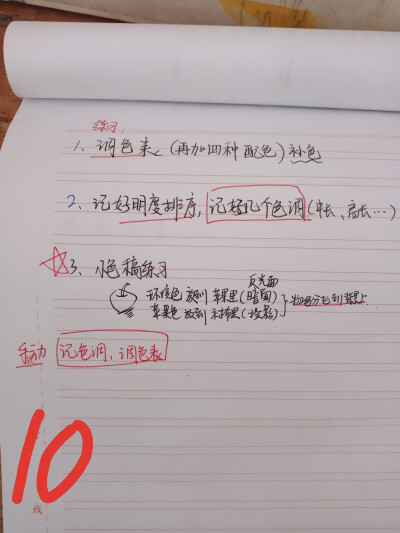 练习:
1、调色表（再加四种配色）补色
2、记好明度排序,记好几个色调(中长、高长…)
☆3、小色稿练习
反光面
环境色 放到 苹果里(暗面)
苹果色 放到 衬布里(投影)
}物
手动 记色调、调色表
10
线